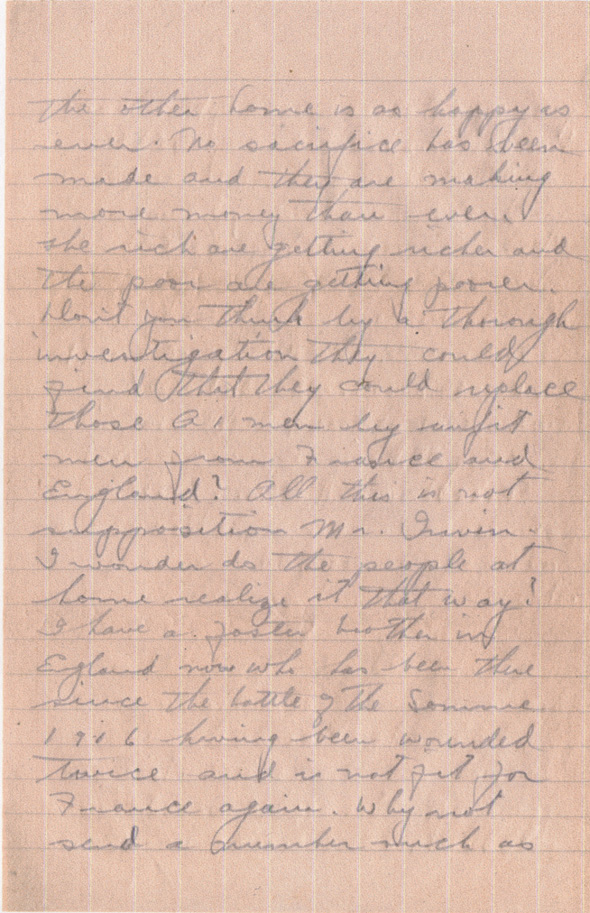 the other home is as happy as
ever. No sacrifice has been
made and they are making
more money than ever.
she rich are getting richer and
the poor are getting poorer.
Don't you think by a thorough
investigation they could
find that they could replace
those A 1 men by unfit
men from France and
England? All this is not
supposition Mr. Irwin.
I wonder do the people at
home realize it that way?
I have a foster brother in
England now who has been there
since the battle of the Somme
1916 having been wounded
twice and is not fit for
France again. Why not
send a number such as